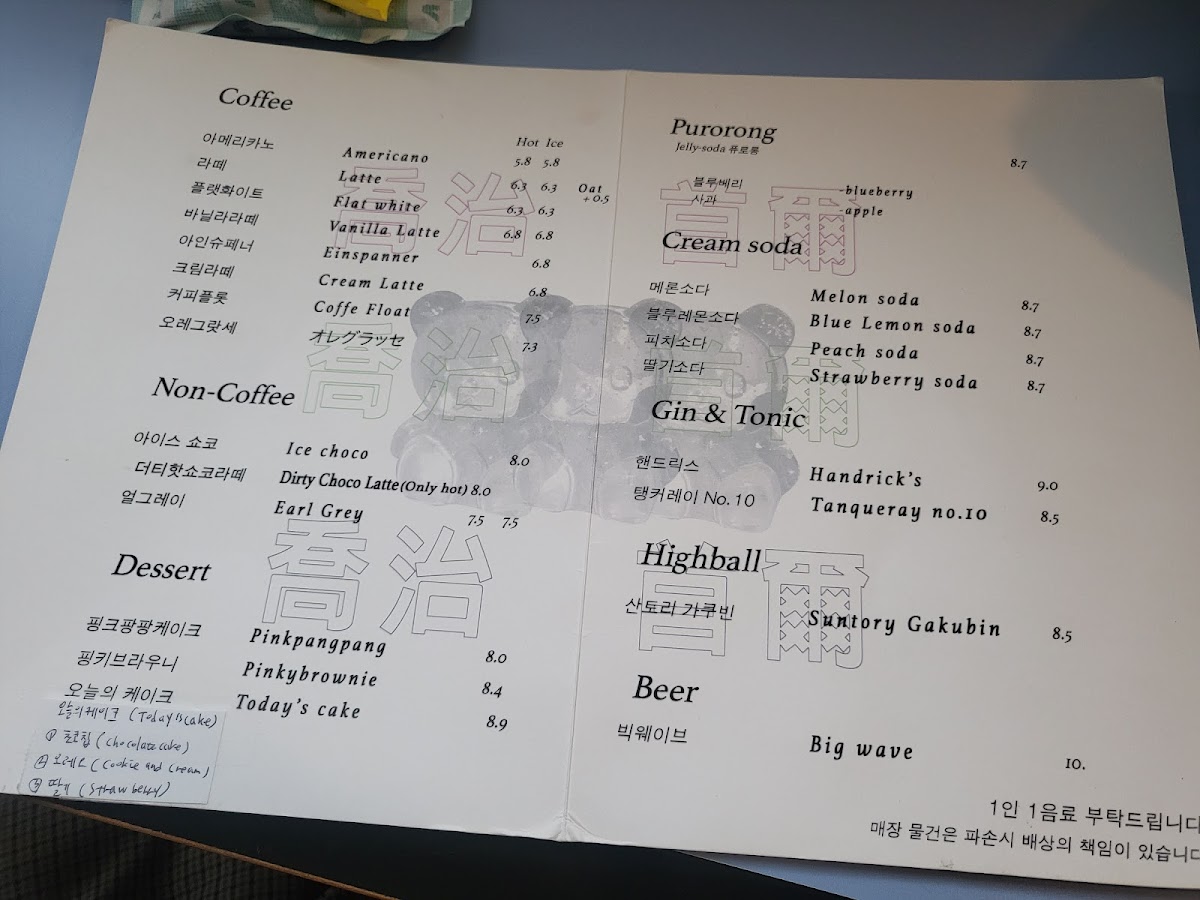 Coffee
Hot Ice
아메리카노 Americano 5.8 5.8
라떼 Latte 6.3 6.3 Oat +0.5
플랫화이트 Flat white 6.3 6.3
바닐라라떼 Vanilla Latte 6.8 6.8
아인슈페너 Einspanner 6.8
크림라떼 Cream Latte 6.8
커피플롯 Coffe Float 7.5
오레그랏세 オレグラッセ 7.3
Non-Coffee
아이스 쇼코 Ice choco 8.0
더티핫쇼코라떼 Dirty Choco Latte (Only hot) 8.0
얼그레이 Earl Grey 7.5 7.5
Dessert
핑크팡팡케이크 Pinkpangpang 8.0
핑키브라우니 Pinkybrownie 8.4
오늘의 케이크 Today's cake 8.9
오늘의케이크 (Today is cake)
① 초코칩 (chocolate cake)
② 오레오 (Cookie and cream)
③ 딸기 (Straw berry)
Purorong
Jelly-soda 퓨로롱 8.7
블루베리 -blueberry
사과 -apple
Cream soda
메론소다 Melon soda 8.7
블루레몬소다 Blue Lemon soda 8.7
피치소다 Peach soda 8.7
딸기소다 Strawberry soda 8.7
Gin & Tonic
핸드릭스 Handrick's 9.0
탱커레이 No. 10 Tanqueray no.10 8.5
Highball
산토리 가쿠빈 Suntory Gakubin 8.5
Beer
빅웨이브 Big wave 10.
1인 1음료 부탁드립니다
매장 물건은 파손시 배상의 책임이 있습니다
喬治 首爾
喬治 首爾
喬治 首爾